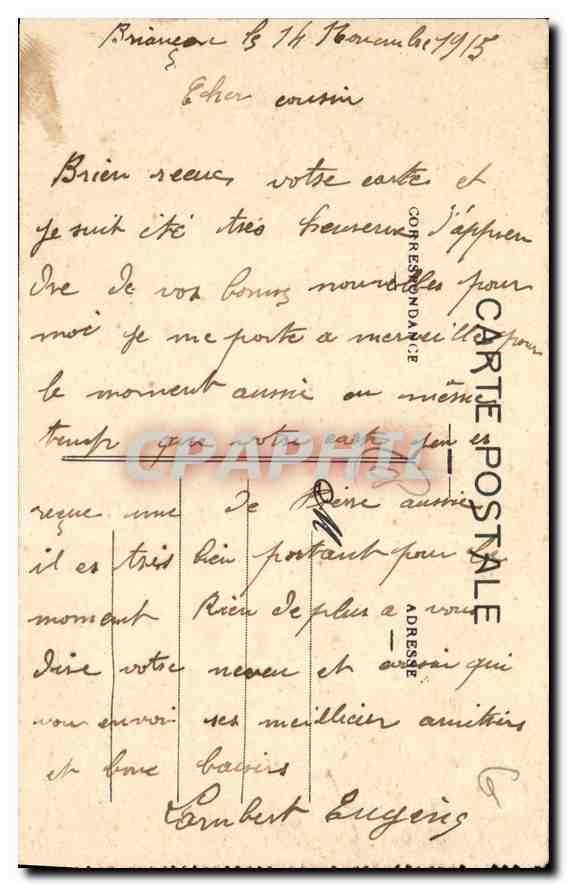 Briançon le 14 Novembre 1915
Cher cousin
Bien reçue votre carte et
je suit été très heureux d'appren
dre de vos bonnes nouvelles pour
moi je me porte a merveille pour
le moment aussi en même
temp que votre carte j'en es
reçue une de Pierre aussi
il es très bien portant pour le
moment Rien de plus a vous
dire votre neveu et cousin qui
vous envoi ses meillieier amitiers
et bonc baisirs
Lambert Eugène
CARTE POSTALE
CORRESPONDANCE
ADRESSE
CPARAMA